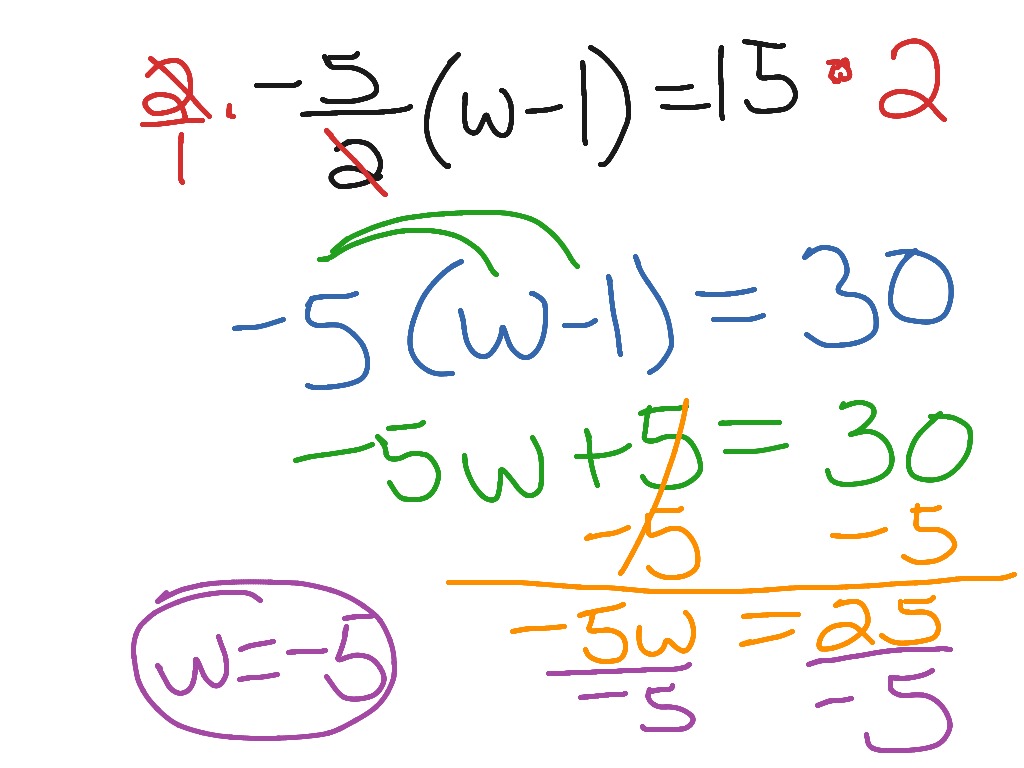 2/1 · -5/2 (w-1) = 15 · 2
-5(w-1) = 30
-5w+5 = 30
-5 -5
-5w = 25
-5 -5
w=-5